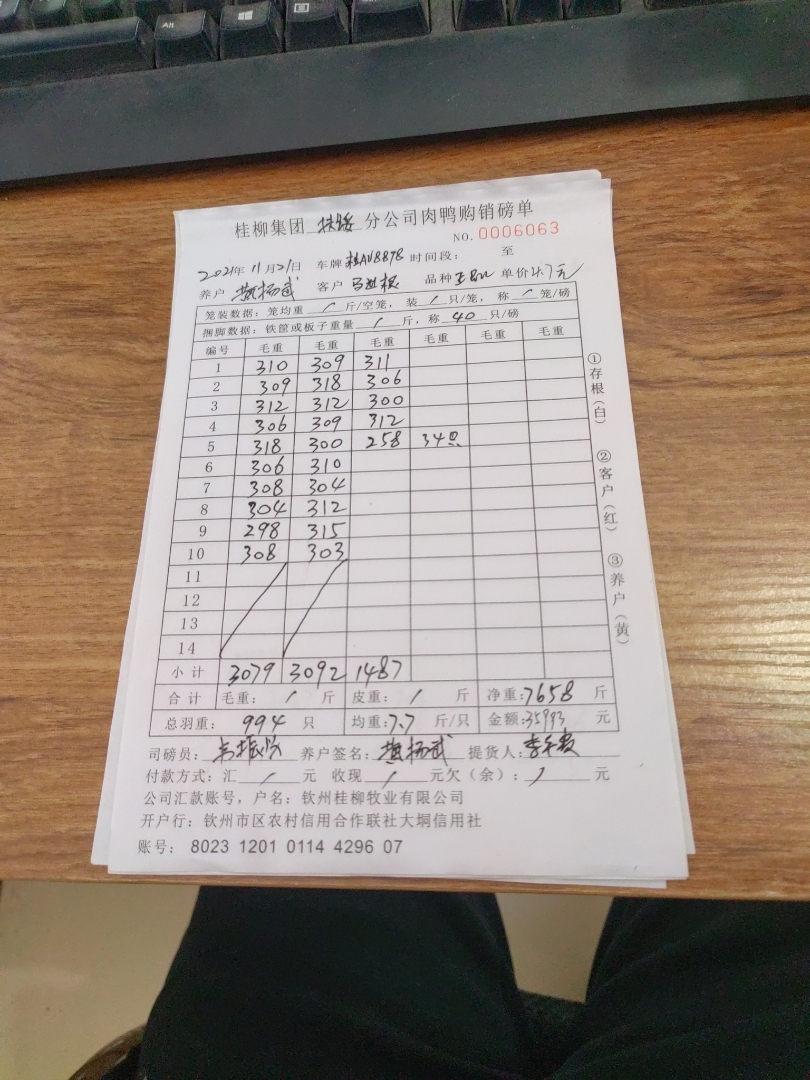 Alt
桂柳集团 扶绥 分公司肉鸭购销磅单
NO. 0006063
2021年 11月21日 车牌 桂AU8898 时间段： 至
养户 黄杨武 客户 马世根 品种 单价 4.7元
笼装数据：笼均重 / 斤/空笼，装 / 只/笼，称 / 笼/磅
捆脚数据：铁筐或板子重量 / 斤，称 40 只/磅
编号 毛重 毛重 毛重 毛重 毛重 毛重
1 310 309 311
2 309 318 306
3 312 312 300
4 306 309 312
5 318 300 258 34只
6 306 310
7 308 304
8 304 312
9 298 315
10 308 303
11
12
13
14
小计 3079 3092 1487
合计 毛重： / 斤 皮重： / 斤 净重：7658 斤
总羽重： 994 只 均重：7.7 斤/只 金额：35993 元
司磅员： 养户签名：黄杨武 提货人：
付款方式：汇 / 元 收现 / 元欠（余）： / 元
公司汇款账号，户名：钦州桂柳牧业有限公司
开户行：钦州市区农村信用合作联社大垌信用社
账号： 8023 1201 0114 4296 07
①存根（白）
②客户（红）
③养户（黄）